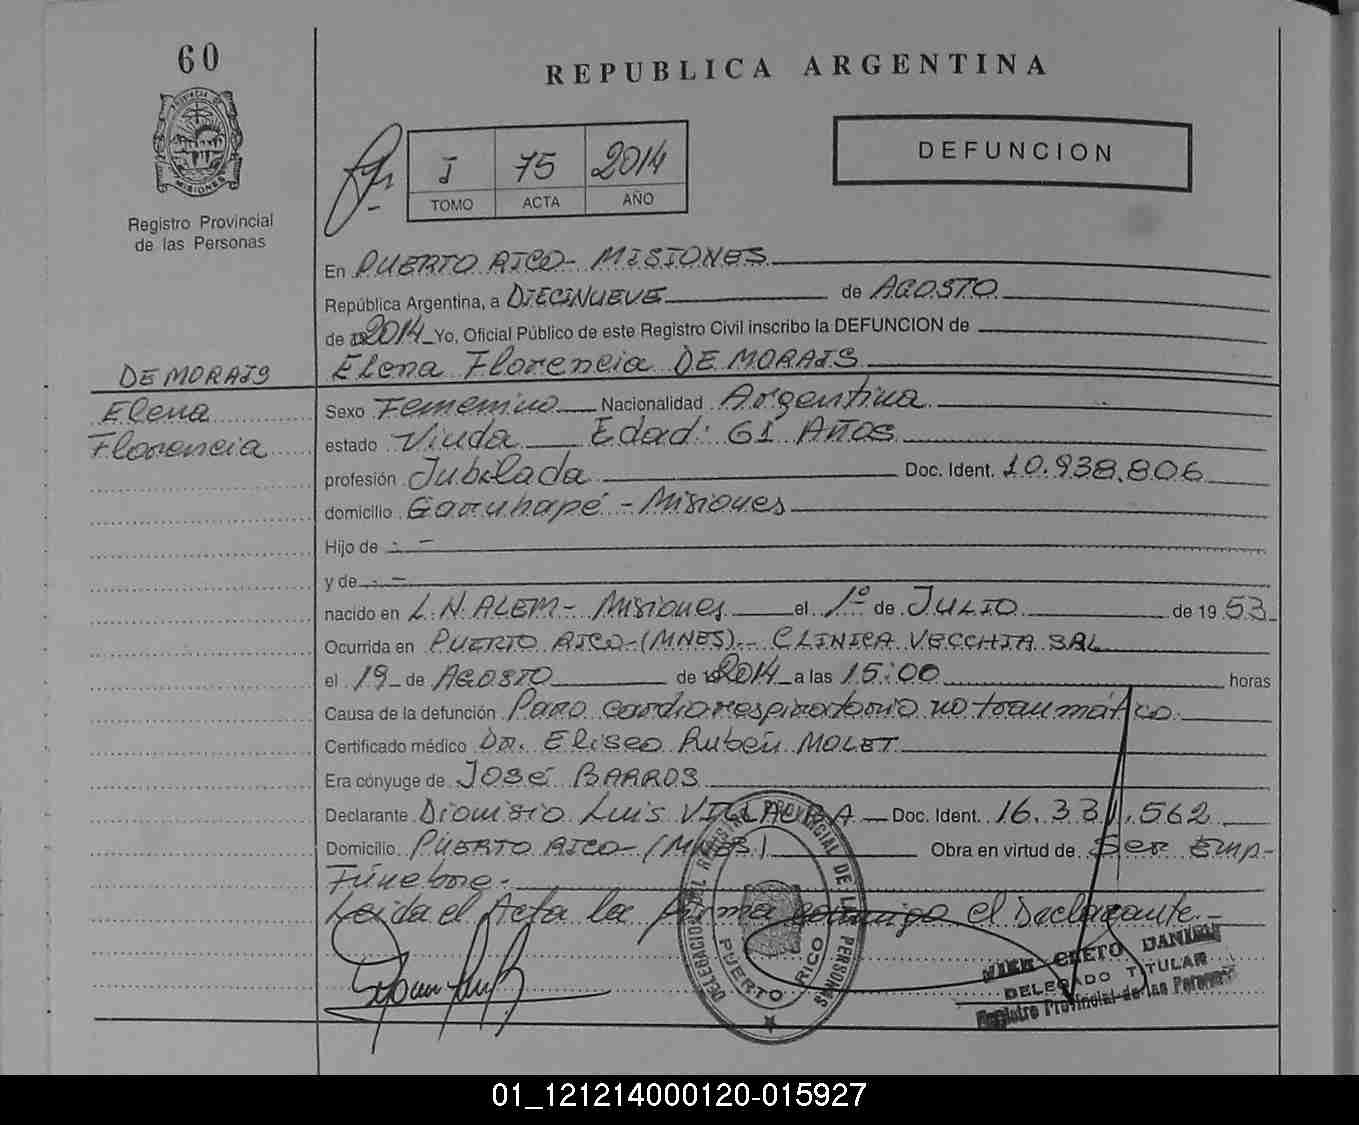 60
REPUBLICA ARGENTINA
PROVINCIA DE
MISIONES
Registro Provincial
de las Personas
I 75 2014
TOMO ACTA AÑO
DEFUNCION
En PUERTO RICO - MISIONES
República Argentina, a DIECINUEVE de AGOSTO
de 2014 Yo, Oficial Público de este Registro Civil inscribo la DEFUNCION de
DE MORAIS
Elena Florencia DE MORAIS
Elena
Florencia
Sexo Femenino Nacionalidad Argentina
estado Viuda Edad: 61 AÑOS
profesión Jubilada Doc. Ident. 10.938.806
domicilio Garuhapé - Misiones
Hijo de . -
y de . -
nacido en L.N. ALEM - Misiones el 1º de JULIO de 1953
Ocurrida en PUERTO RICO - (MNES) - CLINICA VECCHIA SRL
el 19 de AGOSTO de 2014 a las 15:00 horas
Causa de la defunción Paro cardiorespiratorio no traumático
Certificado médico Dr. Eliseo Rubén MOLET
Era cónyuge de JOSÉ BARROS
Declarante Dionisio Luis VILLALBA Doc. Ident. 16.331.562
Domicilio PUERTO RICO - (MNES) Obra en virtud de Ser Emp-
Fúnebre -
Leida el Acta la firma conmigo el Declarante -
DELEGACION DEL REGISTRO PROVINCIAL DE LAS PERSONAS
PUERTO RICO
CRETO DANIEL
DELEGADO TITULAR
Registro Provincial de las Personas
01_121214000120-015927